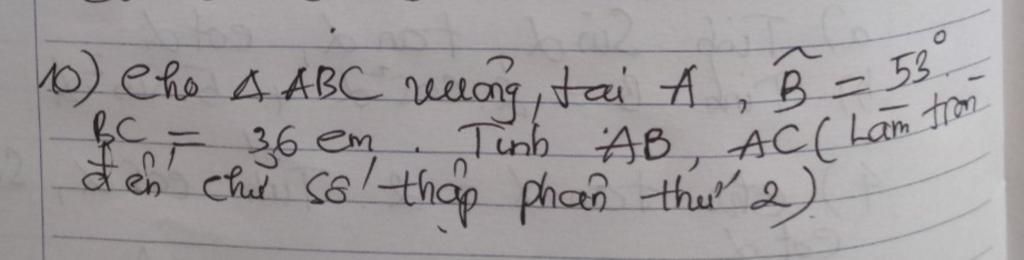 10) Cho Δ ABC vuông, tại A, B̂ = 53°
BC = 36 cm. Tính AB, AC (Làm tròn
đến chữ số thập phân thứ 2)